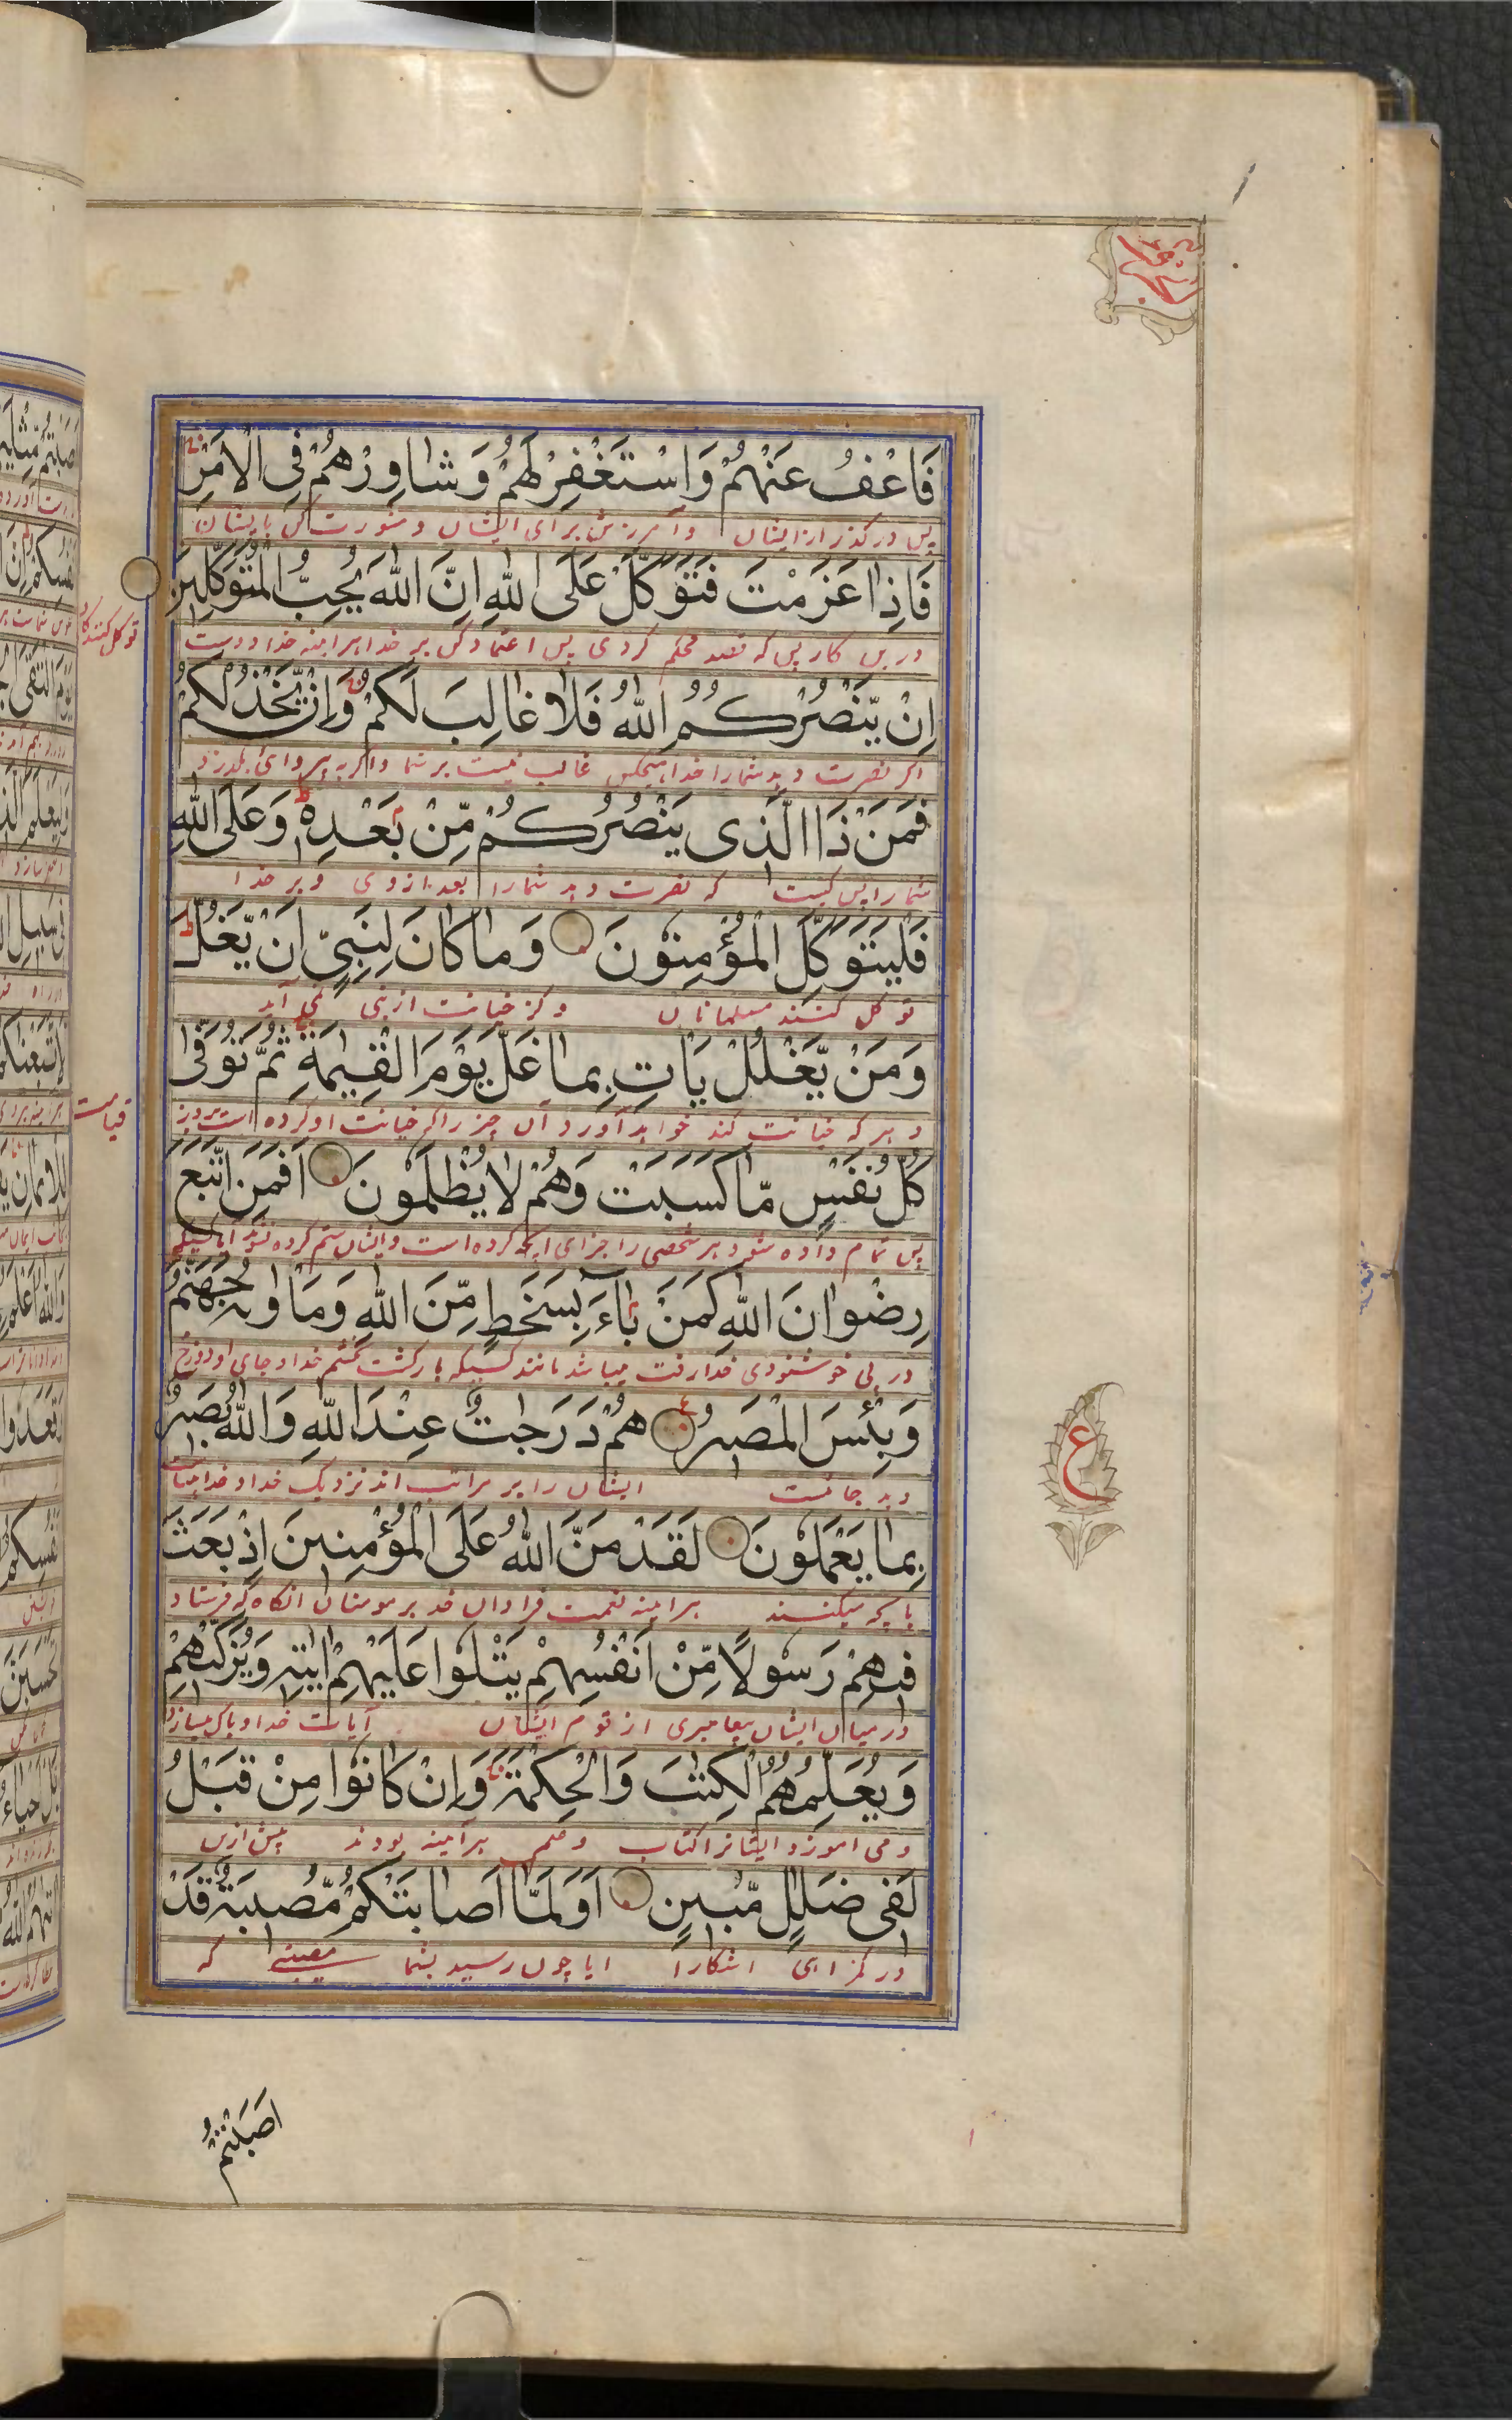 فَاعْفُ عَنْهُمْ وَاسْتَغْفِرْ لَهُمْ وَشَاوِرْهُمْ فِی الْاَمْرِ
پس درگذر از ایشان وآمرزش برای ایشان و مشورت کن با ایشان
فَاِذَا عَزَمْتَ فَتَوَكَّلْ عَلَی اللّٰهِ اِنَّ اللّٰهَ یُحِبُّ الْمُتَوَكِّلِیْنَ
درین کار پس که قصد محکم کردی پس اعتماد کن بر خدا هرآینه خدا دوست
توکل کنندگان
اِنْ یَّنْصُرْكُمُ اللّٰهُ فَلَا غَالِبَ لَكُمْ وَاِنْ یَّخْذُلْكُمْ
اگر نصرت دهد شمارا خدا هیچکس غالب نیست بر شما واگر بی پروائی بگذرد
فَمَنْ ذَا الَّذِی یَنْصُرُكُمْ مِّنْ بَعْدِهٖ وَعَلَی اللّٰهِ
شمارا پس کیست که نصرت دهد شمارا بعد ازوی و بر خدا
فَلْیَتَوَكَّلِ الْمُؤْمِنُوْنَ وَمَا كَانَ لِنَبِیٍّ اَنْ یَّغُلَّ
توکل کنند مسلمانان و کز خیانت از نبی نمی آید
وَمَنْ یَّغْلُلْ یَاْتِ بِمَا غَلَّ یَوْمَ الْقِیٰمَةِ ثُمَّ تُوَفّٰی
و هر که خیانت کند خواهد آورد آن چیز را که خیانت او کرده است بروز
قیامت
كُلُّ نَفْسٍ مَّا كَسَبَتْ وَهُمْ لَا یُظْلَمُوْنَ اَفَمَنِ اتَّبَعَ
پس تمام داده شود هر شخصی را جزای آنچه کرده است و ایشان ستم کرده نشوند آیا کسیکه
رِضْوَانَ اللّٰهِ كَمَنْ بَآءَ بِسَخَطٍ مِّنَ اللّٰهِ وَمَاْوٰىهُ جَهَنَّمُ
در پی خوشنودی خدا رفت میباشد مانند کسیکه بازگشت بخشم خدا و جای او دوزخ
وَبِئْسَ الْمَصِیْرُ هُمْ دَرَجٰتٌ عِنْدَ اللّٰهِ وَاللّٰهُ بَصِیْرٌ
و بد جائست ایشان را بر مراتب اند نزدیک خدا و خدا بینا
ع
بِمَا یَعْمَلُوْنَ لَقَدْ مَنَّ اللّٰهُ عَلَی الْمُؤْمِنِیْنَ اِذْ بَعَثَ
بآنچه میکنند هرآینه نعمت فراوان خدا بر مومنان آنگاه که فرستاد
فِیْهِمْ رَسُوْلًا مِّنْ اَنْفُسِهِمْ یَتْلُوْا عَلَیْهِمْ اٰیٰتِهٖ وَیُزَكِّیْهِمْ
درمیان ایشان پیغامبری از قوم ایشان آیات خدا و پاک میسازد
وَیُعَلِّمُهُمُ الْكِتٰبَ وَالْحِكْمَةَ وَاِنْ كَانُوْا مِنْ قَبْلُ
و می آموزد ایشانرا کتاب و علم هرآینه بودند پیش ازین
لَفِی ضَلٰلٍ مُّبِیْنٍ اَوَلَمَّا اَصَابَتْكُمْ مُّصِیْبَةٌ قَدْ
در گمراهی آشکارا آیا چون رسید بشما مصیبتی که
اَصَبْتُمْ